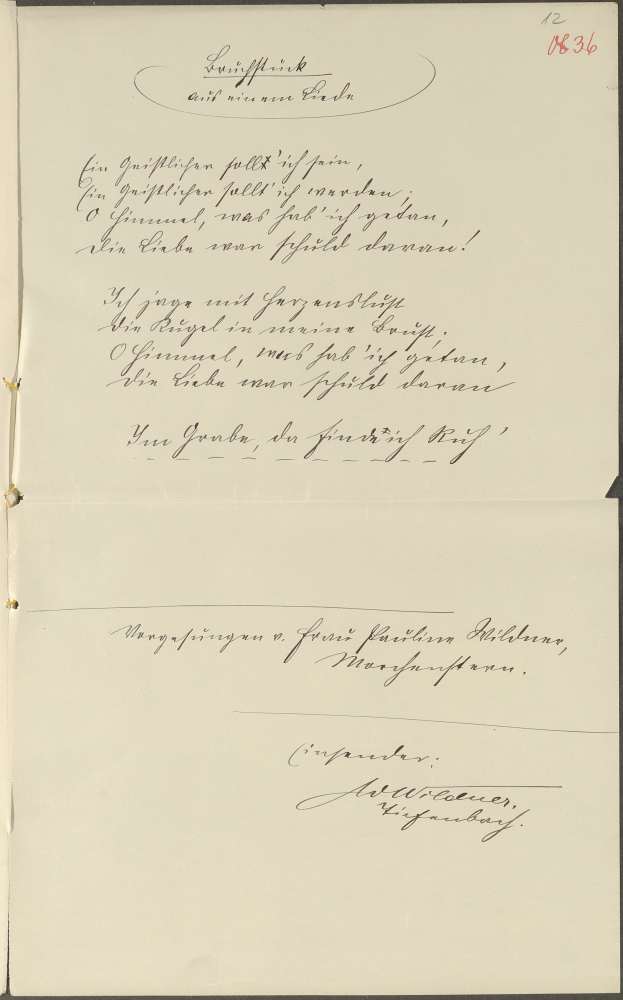 12
0836
Bruchstück
aus einem Liede
Ein Geistlicher sollt' ich sein,
Ein Geistlicher sollt' ich werden;
O Himmel, was hab' ich getan,
Die Liebe war schuld daran!
Ich jage mit Herzenslust
Die Kugel in meine Brust;
O Himmel, was hab' ich getan,
Die Liebe war schuld daran
Im Grabe, da find' ich Ruh'
Vorgesungen v. Frau Pauline Wildner,
Morchenstern.
Einsender:
Ad Wildner.
Tiefenbach.